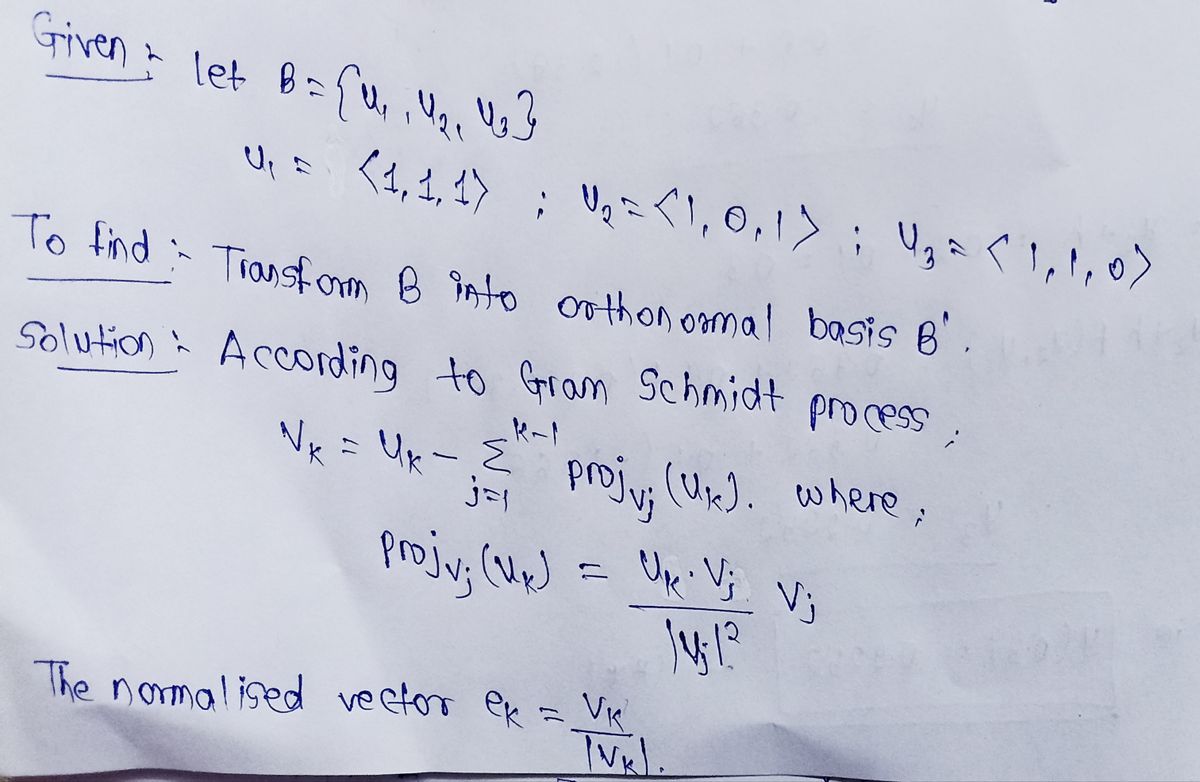 Given :- let B = {u₁, u₂, u₃}
u₁ = <1, 1, 1> ; u₂ = <1, 0, 1> ; u₃ = <1, 1, 0>
To find :- Transform B into orthonormal basis B'.
Solution :- According to Gram Schmidt process ;
Vₖ = uₖ - Σ_{j=1}^{k-1} proj_{vj} (uₖ). where ;
proj_{vj} (uₖ) = \frac{uₖ · Vj}{|Vj|²} Vj
The normalised vector eₖ = \frac{Vₖ}{|Vₖ|}.